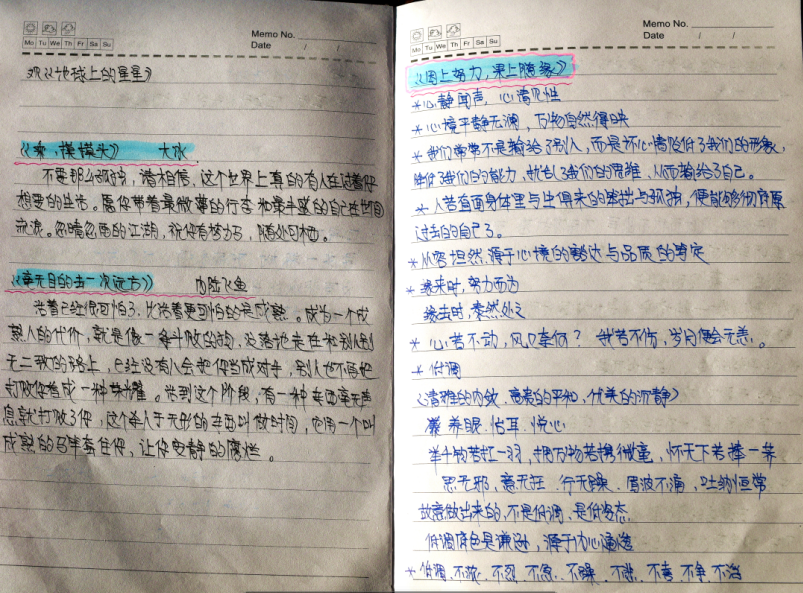 Memo No.
Mo Tu We Th Fr Sa Su
Date / /
观《地球上的星星》
《乖,摸摸头》 大冰
不要那么孤独,请相信,这个世界上真的有人在过着你
想要的生活。愿你带着最微薄的行李和最丰盛的自己在世间
流浪。忽晴忽雨的江湖,祝你有梦为马,随处可栖。
《毫无目的去一次远方》 内陆飞鱼
活着已经很可怕了,比活着更可怕的是成熟。成为一个成
熟人的代价,就是像一条斗败的狗,没落地走在和别人别
无二致的路上,已经没有人会把你当成对手,别人也不再把
打败你当成一种荣耀。来到这个阶段,有一种东西毫无声
息就打败了你,这个杀人于无形的东西叫做时间,它用一个叫
成熟的马甲套住你,让你安静的腐烂。
Memo No.
Mo Tu We Th Fr Sa Su
Date / /
《因上努力,果上随缘》
*心静闻声,心清见性
*心境平静无澜,万物自然得映
*我们常常不是输给了别人,而是坏心情贬低了我们的形象,
降低了我们的能力,扰乱了我们的思维,从而输给了自己。
*人若直面身体里与生俱来的笨拙与孤独,便能够彻底原
过去的自己了。
*从容坦然源于心境的豁达与品质的笃定
*缘来时,努力而为
缘去时,泰然处之
*心若不动,风又奈何? 我若不伤,岁月便会无恙。
*低调
《清雅的内敛、高者的平和、优柔的沉静》
养眼、怡耳、悦心
举千钧若扛一羽,拥万物若携微毫,怀天下若捧一芥
思无邪、意无狂、行无躁、眉波不涌、吐纳恒常
故意做出来的,不是低调、是低姿态
低调底色是谦逊,源于内心通透
*低调、不浓、不烈、不急、不躁、不悲、不喜、不争、不浴